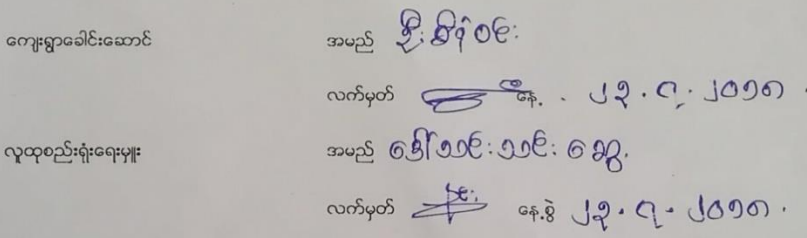 ကျေးရွာခေါင်းဆောင် အမည် ဦးစိန်ဝင်း
လက်မှတ် နေ့ . ၂၃.၇.၂၀၁၈
လူထုစည်းရုံးရေးမှူး အမည် ဒေါ်သင်းသင်းဆွေ
လက်မှတ် နေ့စွဲ ၂၃.၇.၂၀၁၈.